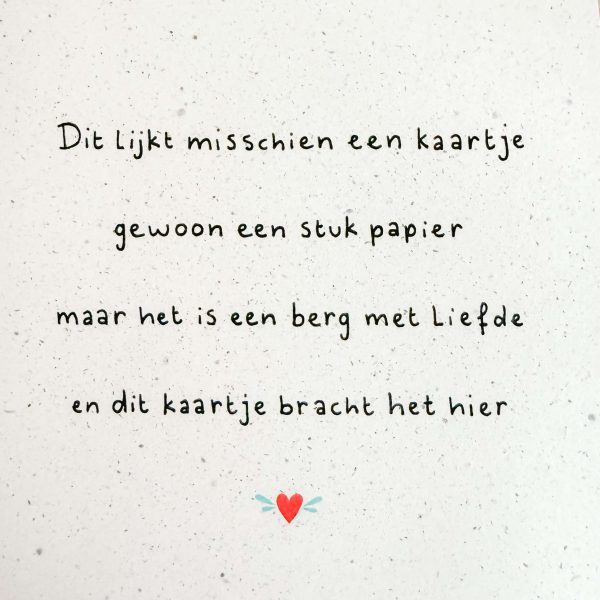 Dit lijkt misschien een kaartje
gewoon een stuk papier
maar het is een berg met liefde
en dit kaartje bracht het hier